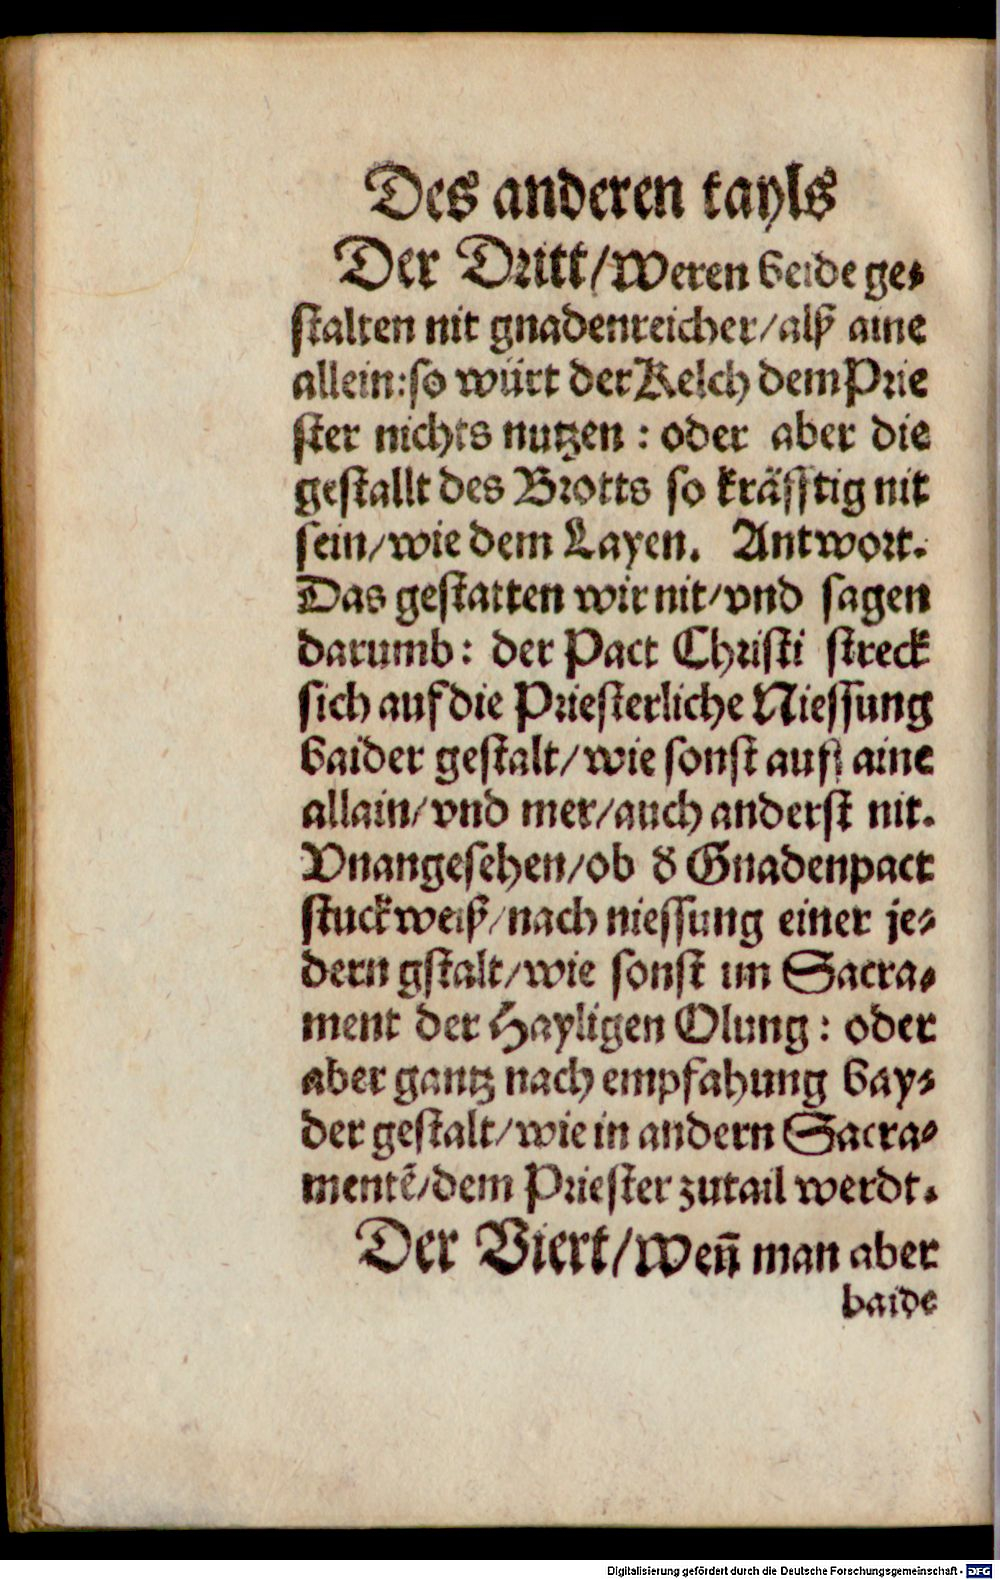 Des anderen tayls
Der Dritt/Weren beide ge-
stalten nit gnadenreicher/alß aine
allein:so würt der Kelch dem Prie
ster nichts nutzen : oder aber die
gestallt des Brotts so kräfftig nit
sein/wie dem Layen. Antwort.
Das gestatten wir nit/vnd sagen
darumb: der Pact Christi streck
sich auf die Priesterliche Niessung
baider gestalt/wie sonst auff aine
allain/vnd mer/auch anderst nit.
Vnangesehen/ob d̕ Gnadenpact
stuckweiß/nach niessung einer je-
dern gstalt/wie sonst im Sacra-
ment der Hayligen Olung: oder
aber gantz nach empfahung bay-
der gestalt/wie in andern Sacra-
mentẽ/dem Priester zutail werdt.
Der Viert/Weñ man aber
baide
Digitalisierung gefördert durch die Deutsche Forschungsgemeinschaft - DFG